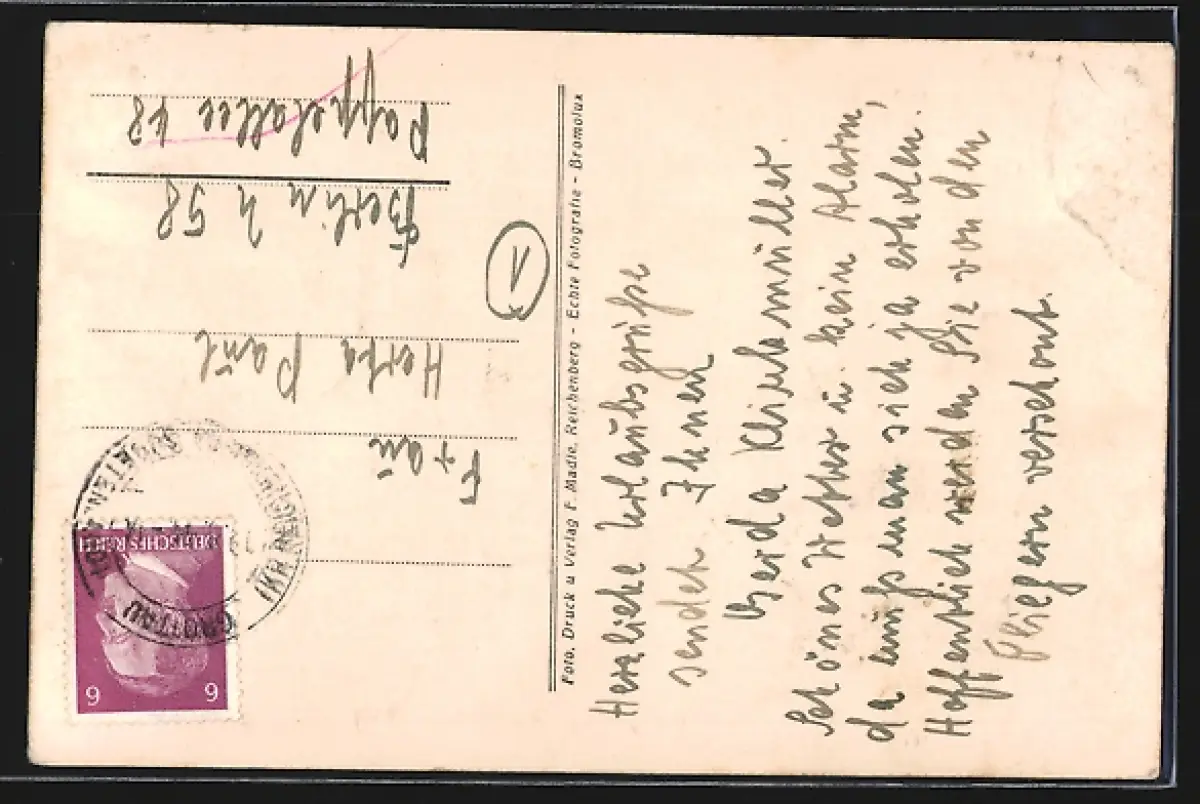 Herzliche Urlaubsgrüße
sendet Ihnen
Gerda
Schönes Wetter u. kein Alarm,
da muß man sich ja erholen.
Hoffentlich werden Sie von den
Fliegern verschont.
Foto, Druck u Verlag F. Madle, Reichenberg - Echte Fotografie - Bromolux
1
Frau
Herta
Berlin N 58
Pappelallee 48
DEUTSCHES REICH
6 6
GROTTAU